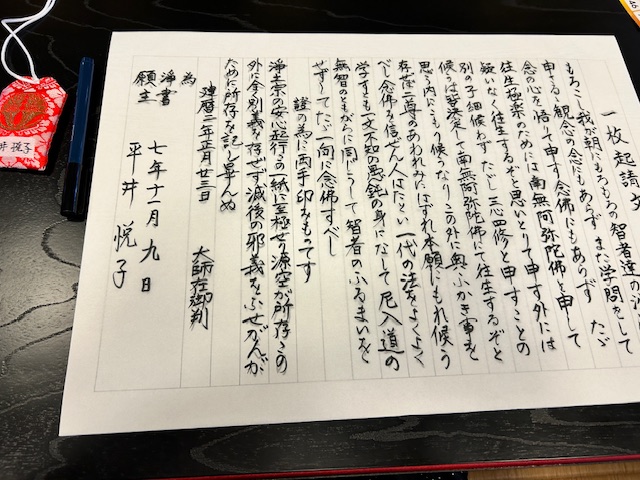 一枚起請文
もろこし我が朝にもろもろの智者達の
申さるゝ観念の念にもあらず また学問をして
念の心を悟りて申す念佛にもあらず たゞ
往生極楽のためには南無阿弥陀佛と申して
疑いなく往生するぞと思いとりて申す外には
別の子細候わず たゞし三心四修と申すことの
候うは皆決定して南無阿弥陀佛にて往生するぞと
思う内にこもり候うなり この外に奥ふかき事を
存ぜば二尊のあわれみにはずれ本願にもれ候う
べし 念佛を信ぜん人はたとい一代の法をよくよく
学すとも一文不知の愚鈍の身になして尼入道の
無智のともがらに同じうして智者のふるまいを
せずしてたゞ一向に念佛すべし
證の為に両手印をもってす
浄土宗の安心起行この一紙に至極せり源空が所存この
外に全く別義を存ぜず滅後の邪義をふせがんが
ために所存を記し畢んぬ
建暦二年正月廿三日 大師在御判
為
浄書
願主
七年十一月九日
平井悦子
井 悦子
46